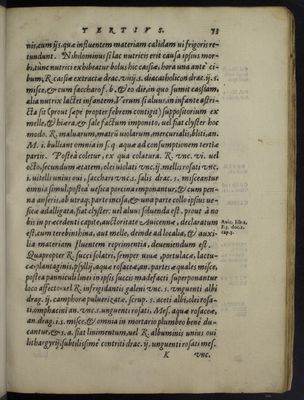 TERTIVS. 73
nis, cum ijs, quæ influentem materiam calidam ui frigoris re-
tundunt. Nihilominus si lac nutricis erit causa ipsius mor-
bi, tunc nutrici exhibeatur bolus hic cassiæ, hora una ante ci-
bum, R. cassiæ extractæ drac. viij. s. diacatholicon drac. ij. s.
misce, & cum saccharo f. b. & eo die, in quo sumit cassiam,
alia nutrix lactet infantem. Verum si aluus, in infante astri-
cta sit (prout sæpe propter febrem contigit) suppositorium ex
melle, & hiera, & sale factum imponito, uel fiat clyster hoc
modo. R. maluarum, matrũ uiolarum, mercurialis, bliti, an.
M. i. bulliant omnia in s. q. aquæ ad consumptionem tertiæ
partis. Postea coletur, ex qua colatura. R. vnc. vi. uel
octo, secundum ætatem, olei uiolati vnc. ij. mellis rosati vnc.
i. uitellii unius oui, sacchari vnc. s. salis drac. s. misceantur
omnia simul, postea uesica porcina imponantur, & cum pen-
na anseris, ab utraq; parte incisa, & una parte collo ipsius ue-
sicæ adalligata, fiat clyster: uel aluus subuenda est, prout à no
bis in præcedenti capite, auctoritate Auicennæ, declaratum
est, cum terebinthina, aut melle, deinde ad localia, & auxi-
lia materiam fluentem reprimentia, deueniendum est.
Auic. lib. 1.
Quapropter R. succi solatri, semper uiuæ, portulacæ, lactu-
cæ, plantaginis, psyllij, aquæ rosaceæ, an. partes æquales misce,
postea panniculi linei in ipsis succis madefacti superponantur
loco affecto: uel R. infrigidantis galeni vnc. s. unguenti albi
drag. ij. camphoræ puluerizatæ. scrup. s. aceti albi, olei rosa-
ti, omphacini an. vnc. s. unguenti rosati. Mes. aquæ rosaceæ,
an. drag. i. s. misce, & omnia in mortario plumbeo bene du-
cantur, & s. a. fiat linimentum, uel R. albuminis unius oui
lithargyrij, subtilissimè contriti drac. ij. unguenti rosati mes.
K vnc.